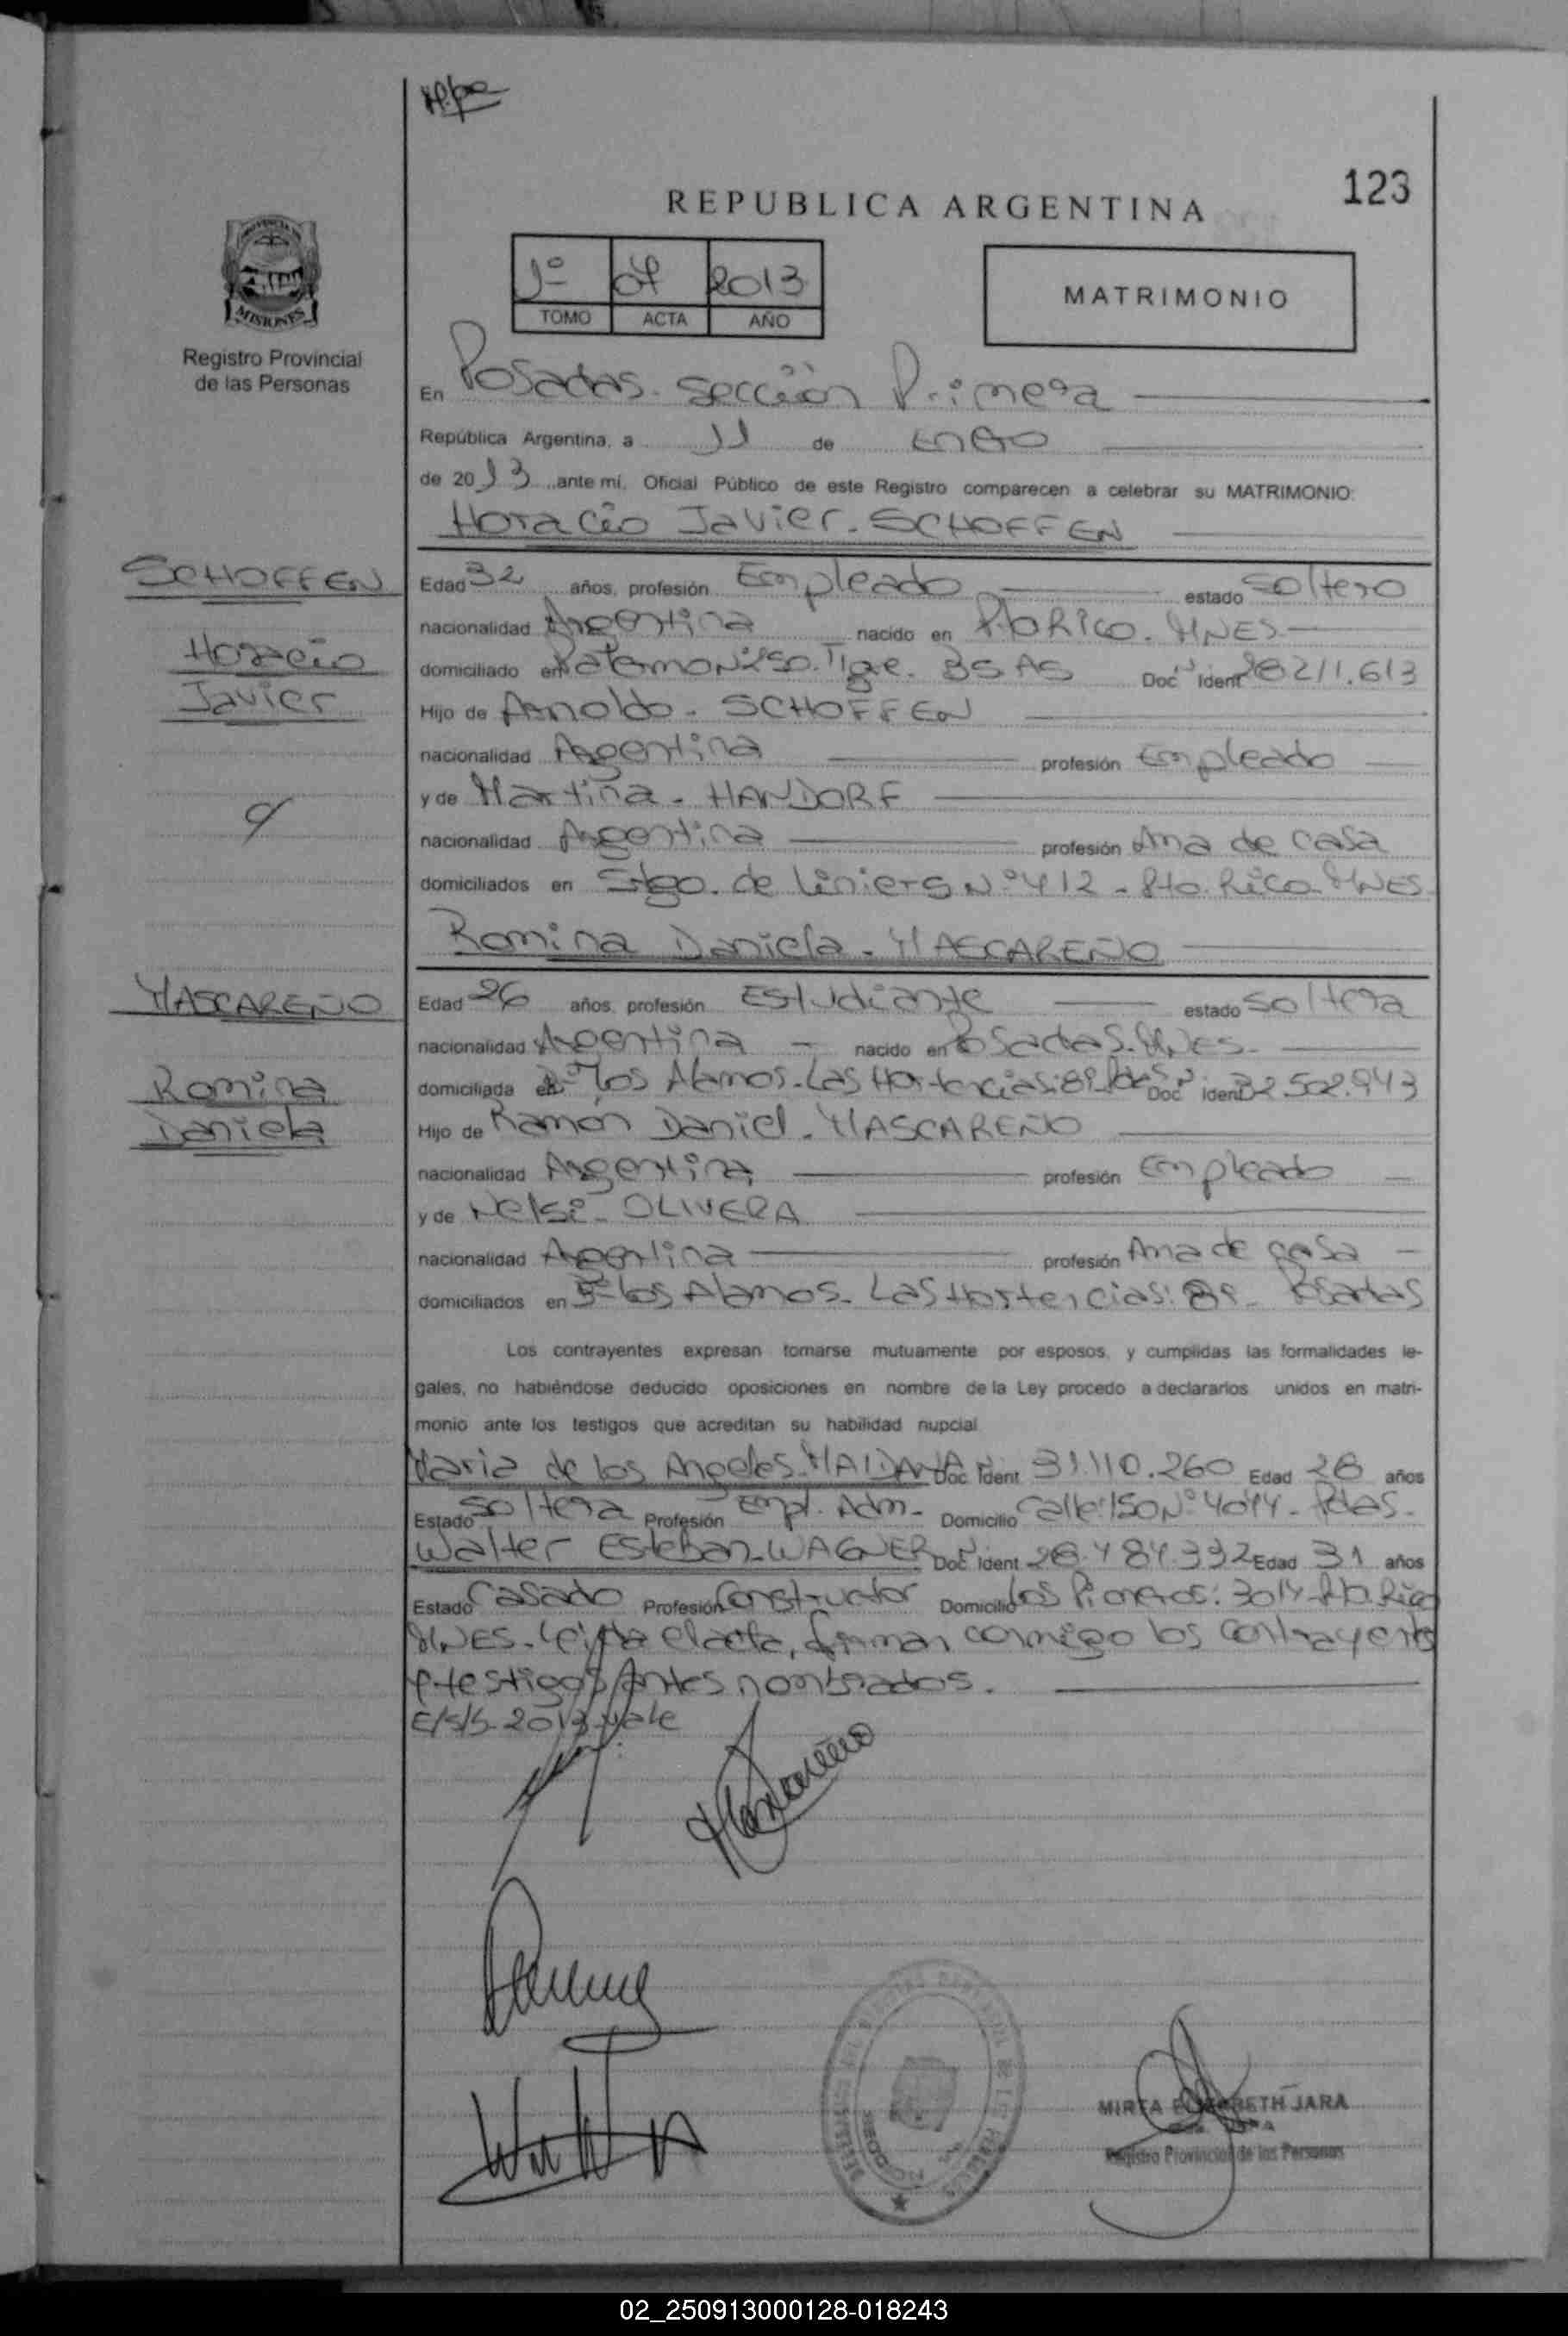 123
REPUBLICA ARGENTINA
MISIONES
Registro Provincial
de las Personas
1º 07 2013
TOMO ACTA AÑO
MATRIMONIO
En Posadas. Sección Primera
República Argentina, a 11 de Enero
de 2013 ante mí, Oficial Público de este Registro comparecen a celebrar su MATRIMONIO:
Horacio Javier - SCHOFFEN
SCHOFFEN
Horacio
Javier
Edad 32 años, profesión Empleado estado Soltero
nacionalidad Argentina nacido en Pto Rico. MNES
domiciliado en Nº 250. Tigre. BS AS Doc Ident 28211.613
Hijo de Arnoldo - SCHOFFEN
nacionalidad Argentina profesión Empleado
y de Martina - HANDORF
nacionalidad Argentina profesión Ama de casa
domiciliados en Stgo. de Liniers Nº 412 - Pto. Rico MNES
Romina Daniela - MASCAREÑO
MASCAREÑO
Romina
Daniela
Edad 26 años, profesión Estudiante estado Soltera
nacionalidad Argentina - nacido en Posadas. MNES.
domiciliada en Bº Los Alamos - Las Hortencias: 89 Pdas Doc Ident 32.502.943
Hijo de Ramón Daniel - MASCAREÑO
nacionalidad Argentina profesión Empleado
y de Nelsi - OLIVERA
nacionalidad Argentina profesión Ama de casa
domiciliados en Bº Los Alamos - Las Hortencias: 89 - Posadas
Los contrayentes expresan tomarse mutuamente por esposos, y cumplidas las formalidades le-
gales, no habiéndose deducido oposiciones en nombre de la Ley procedo a declararlos unidos en matri-
monio ante los testigos que acreditan su habilidad nupcial
Maria de los Angeles - MAIDANA Doc Ident 31.110.260 Edad 28 años
Estado Soltera Profesión Empl. Adm. Domicilio Calle: 150 Nº 4044 - Pdas.
Walter Esteban - WAGNER Doc Ident 28.484.332 Edad 31 años
Estado Casado Profesión Constructor Domicilio Los Pioneros: 3014 - Pto. Rico
MNES. Leída el acta, firman conmigo los contrayentes
y testigos antes nombrados.
E/S/S. 2013 vale
MIRTA ELIZABETH JARA
Registro Provincial de las Personas
02_250913000128-018243